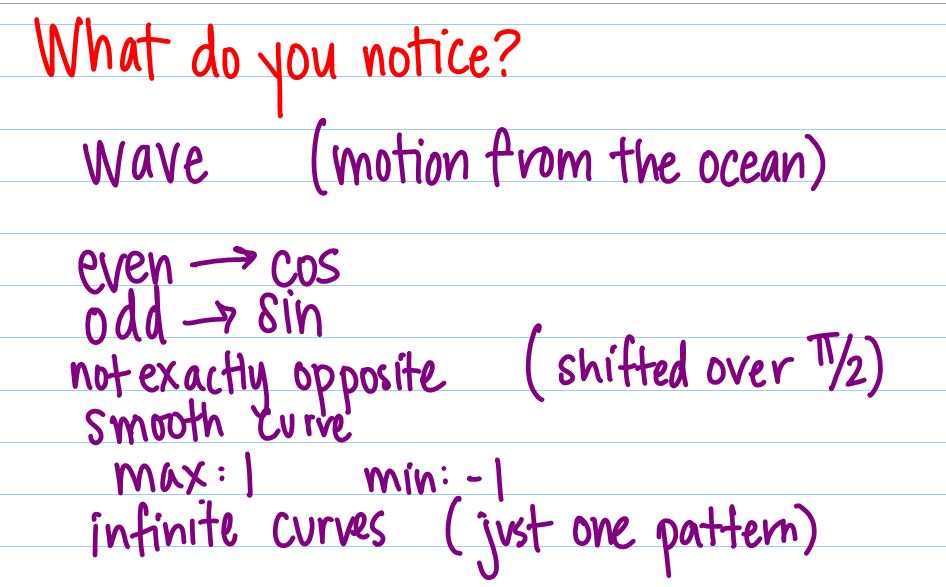 What do you notice?
wave (motion from the ocean)
even → cos
odd → sin
not exactly opposite (shifted over π/2)
smooth curve
max: 1 min: -1
infinite curves (just one pattern)